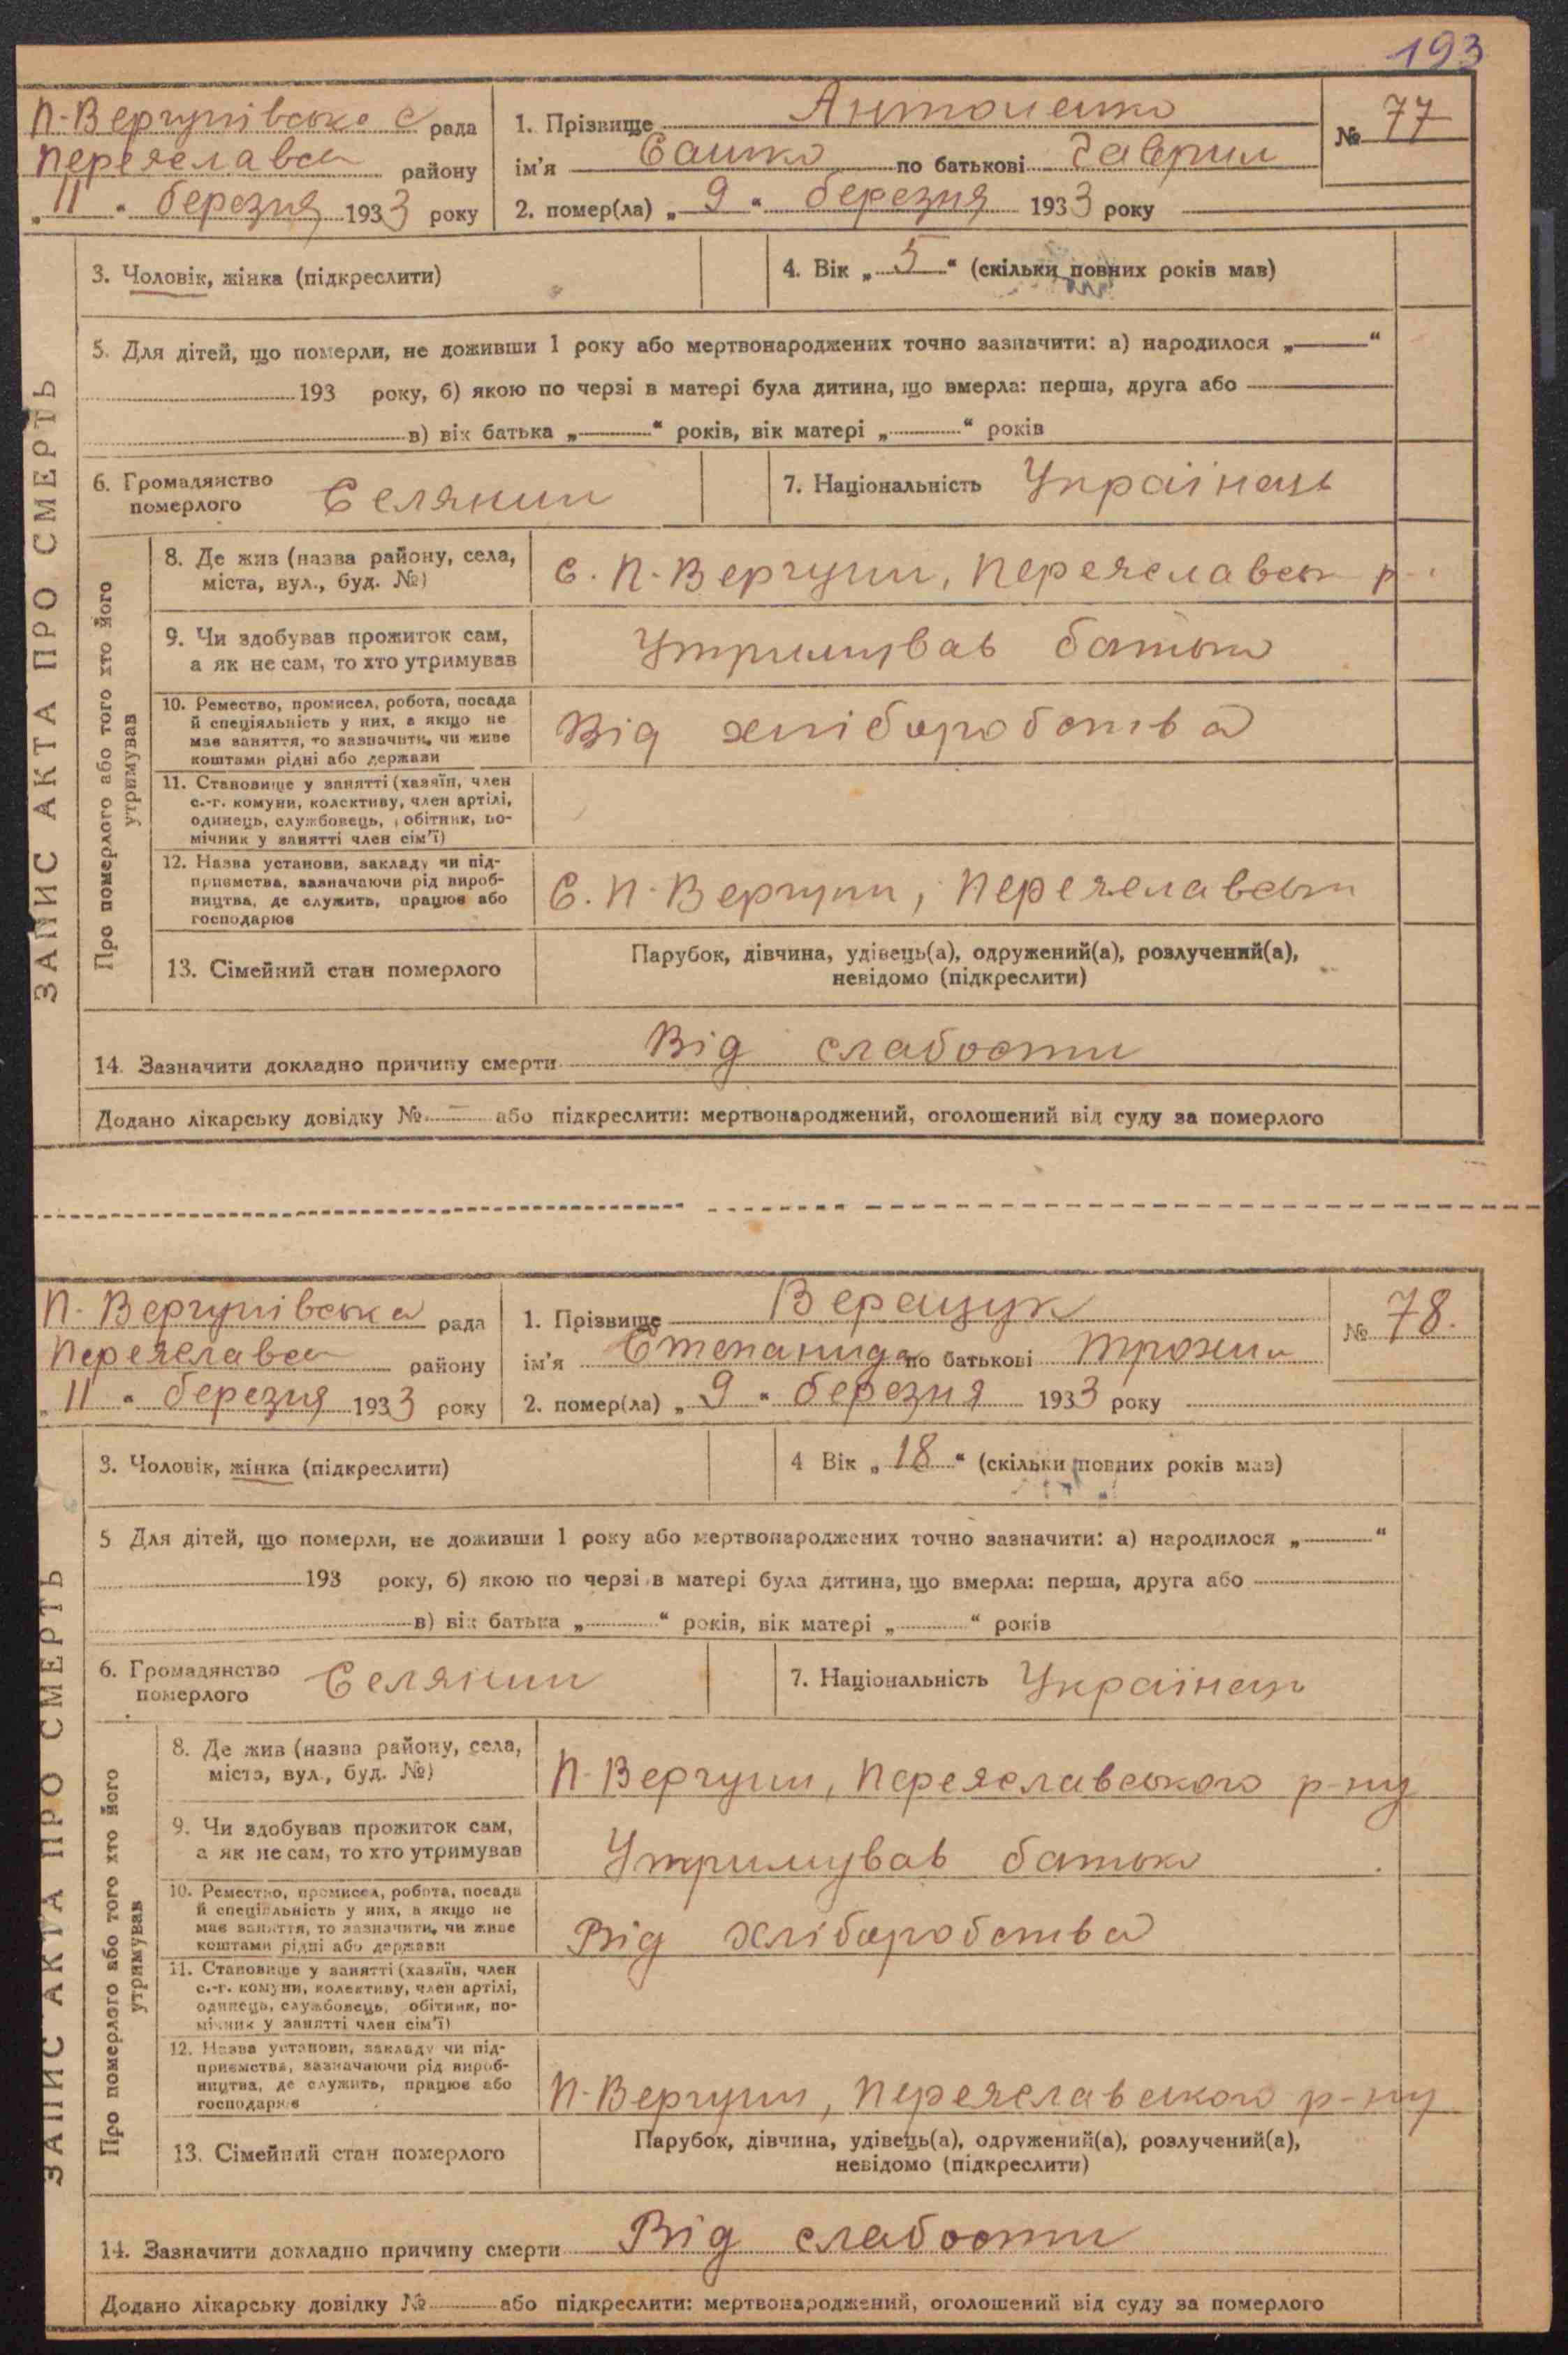 193
П-Вергунівська с рада
Переяславськ району
„ 11 “ березня 1933 року
1. Прізвище Антоненко
ім'я Сашко по батькові Гаврил
2. помер(ла) „ 9 “ березня 1933 року
№ 77
ЗАПИС АКТА ПРО СМЕРТЬ
3. Чоловік, жінка (підкреслити)
4. Вік „ 5 “ (скільки повних років мав)
5. Для дітей, що померли, не доживши 1 року або мертвонароджених точно зазначити: а) народилося „ “
193 року, б) якою по черзі в матері була дитина, що вмерла: перша, друга або
в) вік батька „ “ років, вік матері „ “ років
6. Громадянство
померлого
Селянин
7. Національність Українець
Про померлого або того хто його
утримував
8. Де жив (назва району, села,
міста, вул., буд. №)
С. П-Вергуни, Переяславськ р-
9. Чи здобував прожиток сам,
а як не сам, то хто утримував
Утримував батько
10. Ремество, промисел, робота, посада
й спеціяльність у них, а якщо не
має заняття, то зазначити, чи живе
коштами рідні або держави
Від хліборобства
11. Становище у занятті (хазяїн, член
с.-г. комуни, колективу, член артілі,
одинець, службовець, обітник, по-
мічник у занятті член сім'ї)
12. Назва установи, закладу чи під-
приємства, зазначаючи рід вироб-
ництва, де служить, працює або
господарює
С. П-Вергуни, Переяславськ
13. Сімейний стан померлого
Парубок, дівчина, удівець(а), одружений(а), розлучений(а),
невідомо (підкреслити)
14. Зазначити докладно причину смерти Від слабости
Додано лікарську довідку № або підкреслити: мертвонароджений, оголошений від суду за померлого
П-Вергунівська рада
Переяславськ району
„ 11 “ березня 1933 року
1. Прізвище Верещук
ім'я Степанида по батькові Трохим
2. помер(ла) „ 9 “ березня 1933 року
№ 78.
ЗАПИС АКТА ПРО СМЕРТЬ
3. Чоловік, жінка (підкреслити)
4 Вік „ 18 “ (скільки повних років мав)
5 Для дітей, що померли, не доживши 1 року або мертвонароджених точно зазначити: а) народилося „ “
193 року, б) якою по черзі в матері була дитина, що вмерла: перша, друга або
в) вік батька „ “ років, вік матері „ “ років
6. Громадянство
померлого
Селянин
7. Національність Українець
Про померлого або того хто його
утримував
8. Де жив (назва району, села,
міста, вул., буд. №)
П-Вергуни, Переяславського р-ну
9. Чи здобував прожиток сам,
а як не сам, то хто утримував
Утримував батько
10. Ремество, промисел, робота, посада
й спеціяльність у них, а якщо не
має заняття, то зазначити, чи живе
коштами рідні або держави
Від хліборобства
11. Становище у занятті (хазяїн, член
с.-г. комуни, колективу, член артілі,
одинець, службовець, обітник, по-
мічник у занятті член сім'ї)
12. Назва установи, закладу чи під-
приємства, зазначаючи рід вироб-
ництва, де служить, працює або
господарює
П-Вергуни, Переяславського р-ну
13. Сімейний стан померлого
Парубок, дівчина, удівець(а), одружений(а), розлучений(а),
невідомо (підкреслити)
14. Зазначити докладно причину смерти Від слабости
Додано лікарську довідку № або підкреслити: мертвонароджений, оголошений від суду за померлого